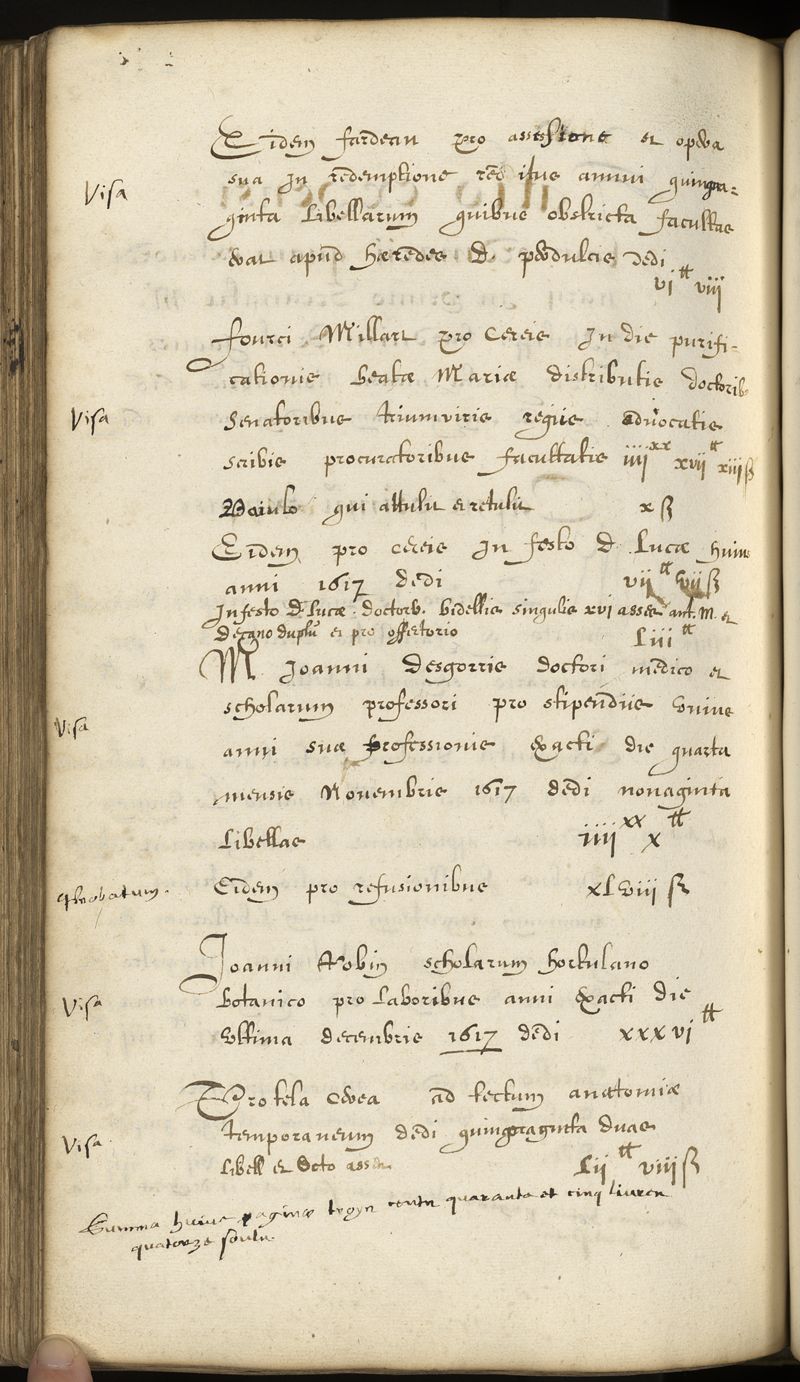 Eidem fardeau pro assessione et opera
Visa
sua in redemptione reditus annui quinqua-
ginta libellarum quibus obstricta facultas
erat apud hæredes d. perdulcis dedi
vi ₶ viii
fourci Millart pro cereis In die purifi-
cationis beatæ Mariæ distributis doctorib.
Visa
senatoribus triumviris regiis advocatis
scribis procuratoribus facultatis iiii xx xvii ₶ xiii ß
Baiulo qui attulit et retulit x ß
Eidem pro cereis In festo d. Lucæ huius
anni 1617 dedi vii ₶ vii ß
In festo d. Lucæ doctorb. bedellis singulis xvi asses ant. M. et
decano duplũ et pro offertorio Liii ₶
M Joanni Desgorris doctori medico et
scholarum professori pro stipendiis unius
Visa
anni suæ professionis exacti die quarta
mensis Novembris 1617 dedi nonaginta
libellas iiii xx x ₶
approbatum.
Eidem pro refusionibus xLviii ß
Joanni Robin scholarum hortulano
Visa
botanico pro laboribus anni exacti die
ultima decembris 1617 dedi xxxvi ₶
Pro tela cerea ad tectum anatomiæ
Visa
temporaneum dedi quinquaginta duas
libell et octo asses Lii ₶ viii ß
Summa huius paginæ troys centz quarante et cinq livres
quatorze soulz.